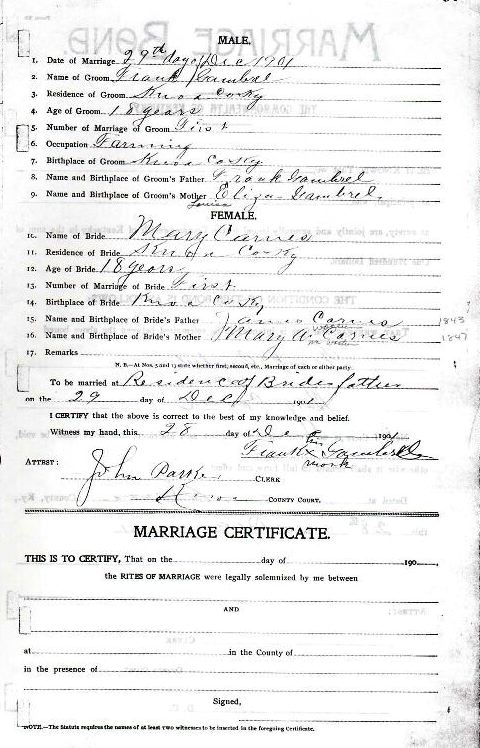 MARRIAGE BOND
MALE.
1. Date of Marriage 29th day of Dec 1901
2. Name of Groom Frank Gambrel
3. Residence of Groom Knox Co Ky
4. Age of Groom 18 years
5. Number of Marriage of Groom First
6. Occupation Farming
7. Birthplace of Groom Knox Co Ky
8. Name and Birthplace of Groom's Father Frank Gambrel
9. Name and Birthplace of Groom's Mother Eliza Gambrel
FEMALE.
10. Name of Bride Mary Carnes
11. Residence of Bride Knox Co Ky
12. Age of Bride 18 years
13. Number of Marriage of Bride First
14. Birthplace of Bride Knox Co Ky
15. Name and Birthplace of Bride's Father James Carnes 1843
16. Name and Birthplace of Bride's Mother Mary A. Carnes 1847
17. Remarks
N. B.—At Nos. 5 and 13 state whether first, second, etc., Marriage of each or either party.
To be married at Residence of Brides father
on the 29 day of Dec 1901
I CERTIFY that the above is correct to the best of my knowledge and belief.
Witness my hand, this 28 day of Dec 1901
Frank x Gambrel
his
mark
ATTEST: John Parker CLERK
Knox COUNTY COURT.
MARRIAGE CERTIFICATE.
THIS IS TO CERTIFY, That on the day of 190 ,
the RITES OF MARRIAGE were legally solemnized by me between
AND
at in the County of
in the presence of
Signed,
NOTE.—The Statute requires the names of at least TWO witnesses to be inserted in the foregoing Certificate.